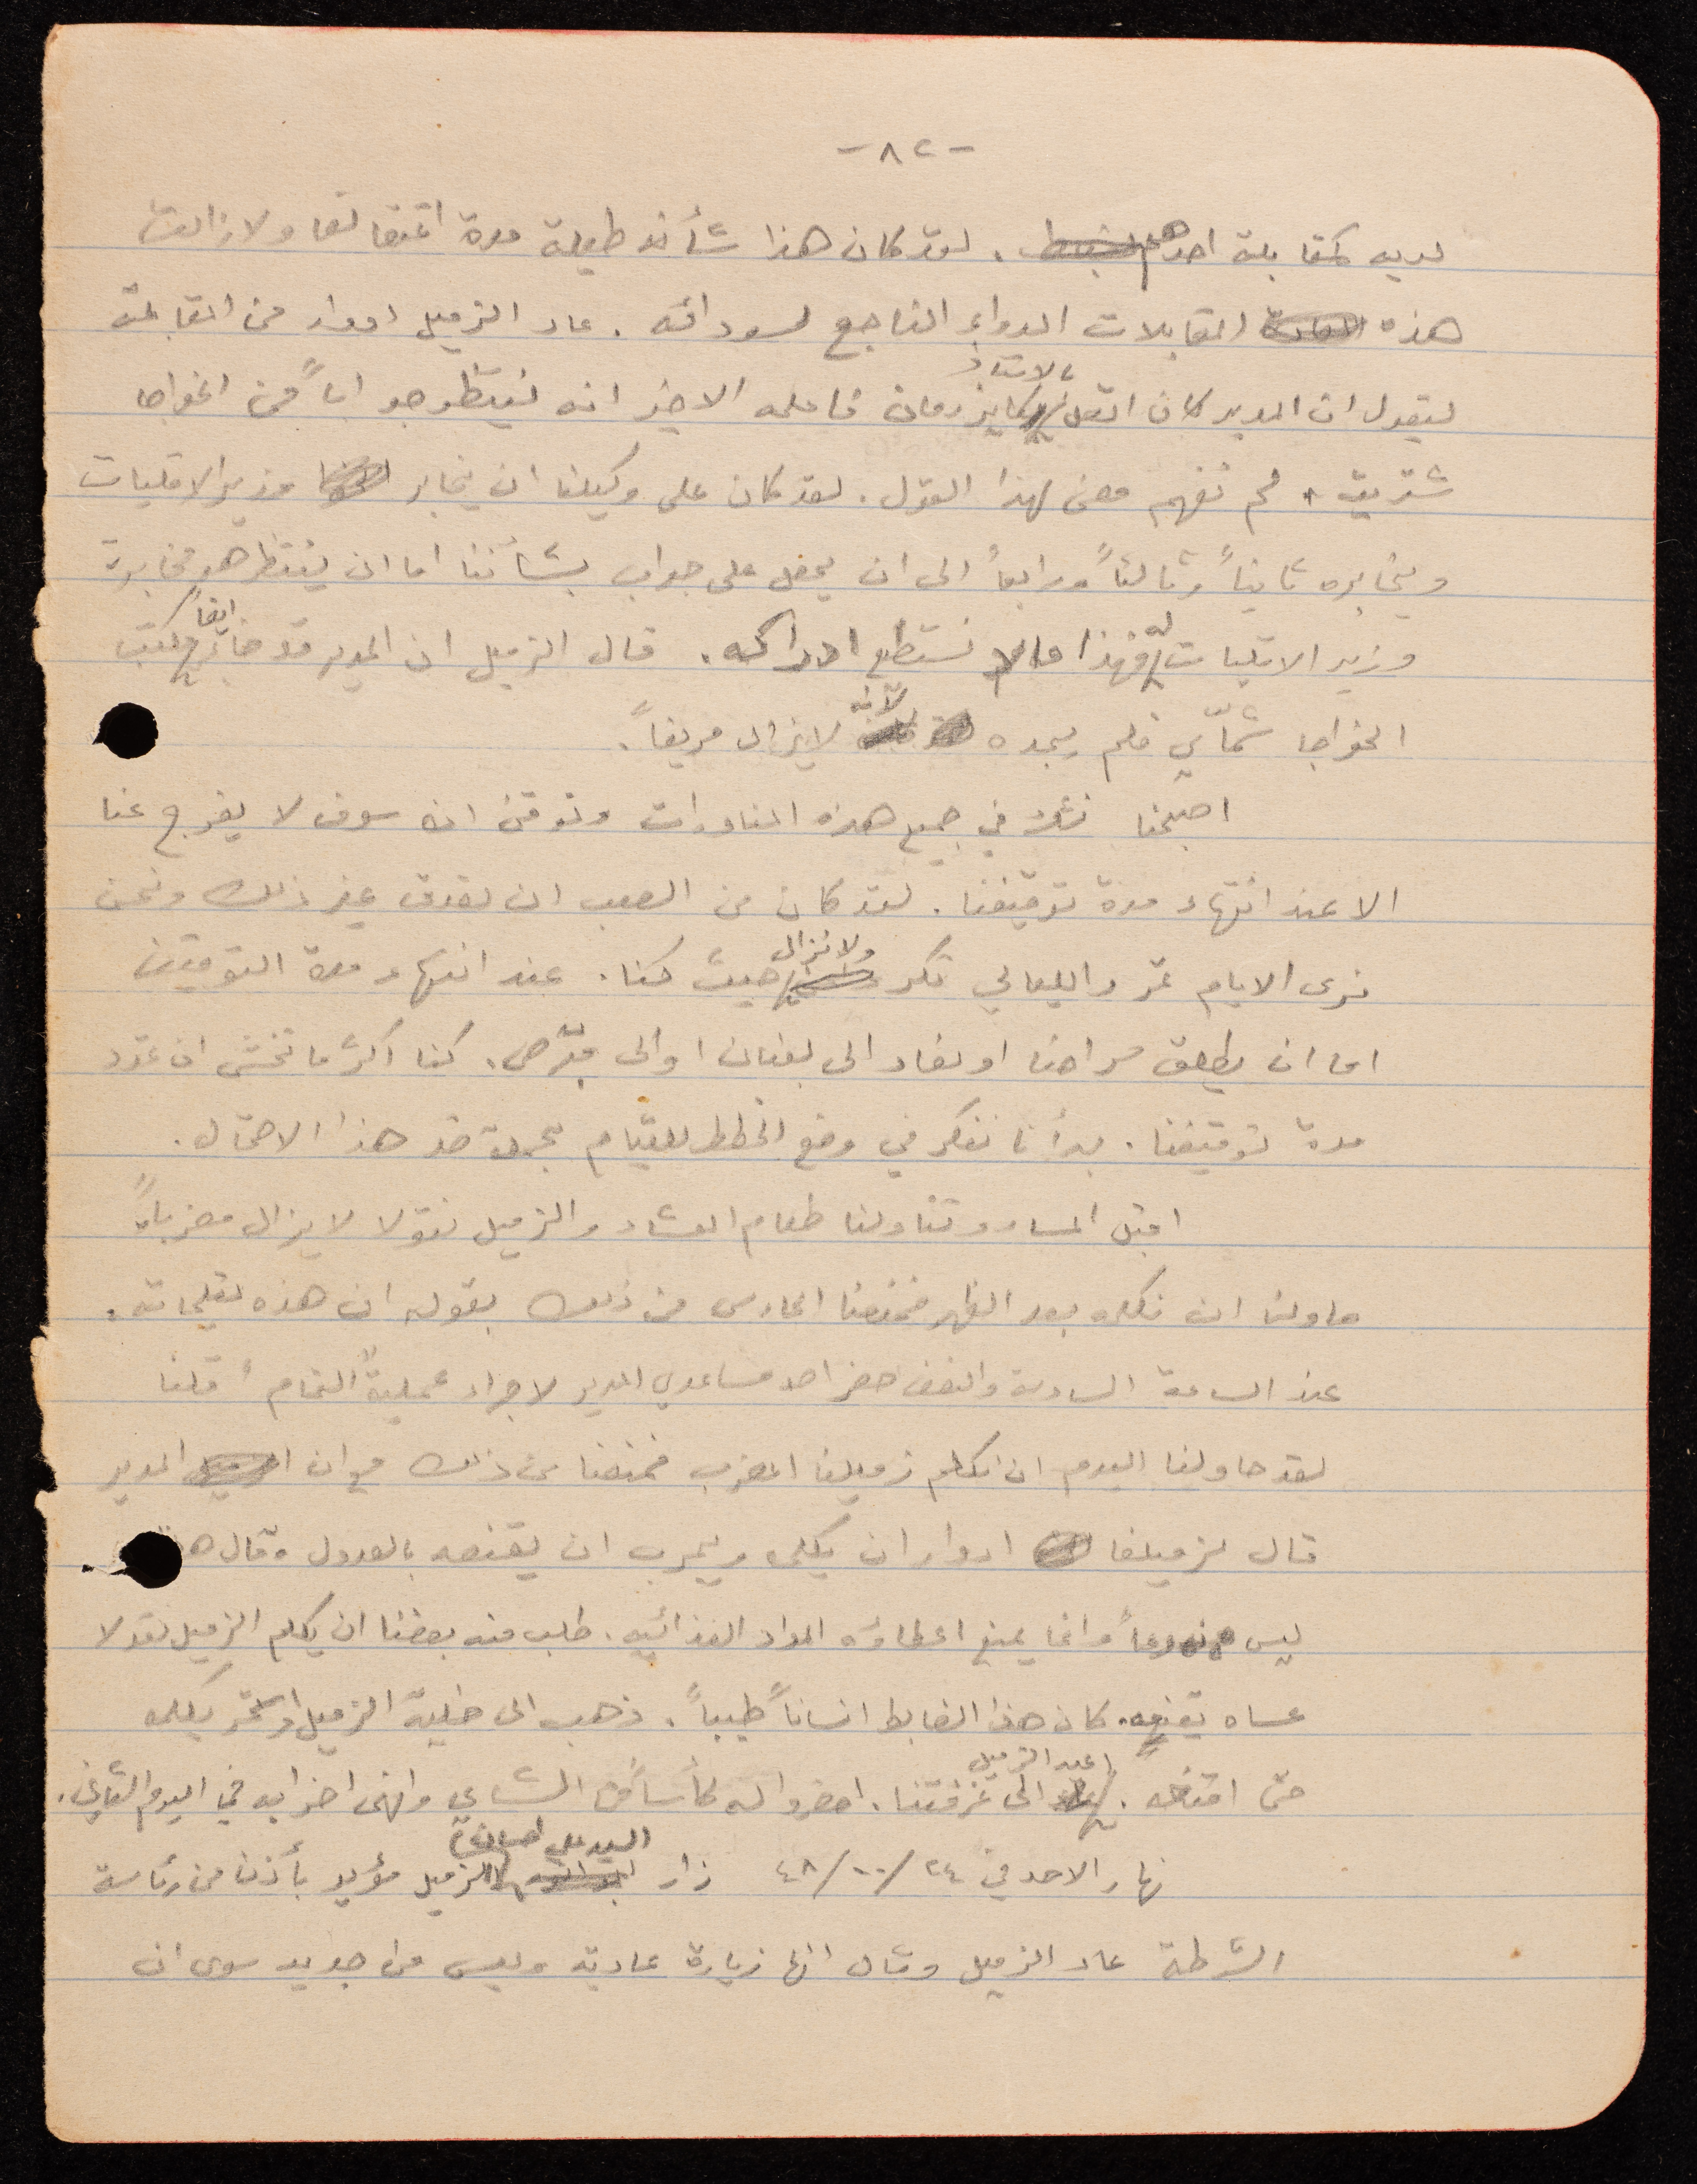 -٨٢-
لديه كمقابلة احدهم . لقد كان هذا شأنه طيلة مدة اعتقالنا ولا زالت
هذه المقابلات الدواء الناجع لسودائه . عاد الزميل ادوار من المقابلة
ليقول ان المدير كان اتصل بالاستاذ فاعلمه الاخير انه ينتظر جواباً من الخواجا
شتريت . لم نفهم معنى لهذا القول . لقد كان على وكيلنا ان يخابر وزير الاقليات
ويخابره ثانياً وثالثاً ورابعاً الى ان يحصل على جواب بشأننا اما ان ينتظر هو مخابرة
وزير الاقليات له فهذا ما لم نستطع ادراكه . قال الزميل ان المدير قد خابر ايضاً مكتب
الخواجا شمّاي فلم يجده لانه لا يزال مريضاً .
اصبحنا نشك في جميع هذه المناورات ونوقن انه سوف لا يفرج عنا
الا عند انتهاء مدة توقيفنا . لقد كان من الصعب ان نصدق غير ذلك ونحن
نرى الايام تمر والليالي تكر ولا نزال حيث كنا . عند انتهاء مدة التوقيف
اما ان يطلق سراحنا او نعاد الى لبنان او الى قبرص . كنا اكثر ما نخشى ان تمدد
مدة توقيفنا . بدأنا نفكر في وضع الخطط للقيام بحملة ضد هذا الاحتمال .
اقبل المساء وتناولنا طعام العشاء والزميل نقولا لا يزال مضرباً
حاولنا ان نكلمه بعد الظهر فمنعنا الحارس من ذلك بقوله ان هذه تعليماته .
عند الساعة السادسة والنصف حضر احد مساعدي المدير لاجراء عملية التمام فقلنا
لقد حاولنا اليوم ان نكلم زميلنا المضرب فمنعنا من ذلك مع ان المدير
قال لزميلنا ادوار ان يكلمه ويجرب ان يقنعه بالعدول وقال
ليس ممنوعاً وانما يمنع اعطاؤه المواد الغذائية . طلب منه بعضنا ان يكلم الزميل نقولا
عساه يقنعه . كان هذا الضابط انساناً طيباً . ذهب الى خلية الزميل واستمر يكلمه
حتى اقنعه . اعيد الزميل الى غرفتنا . احضروا له كأساً من الشاي وانهى اضرابه في اليوم الثاني .
نهار الاحد في ٢٤/١٠/٤٨ زار السيد علي الزميل مؤيد بأذن من رئاسة
الشرطة عاد الزميل وقال انها زيارة عادية وليس من جديد سوى ان